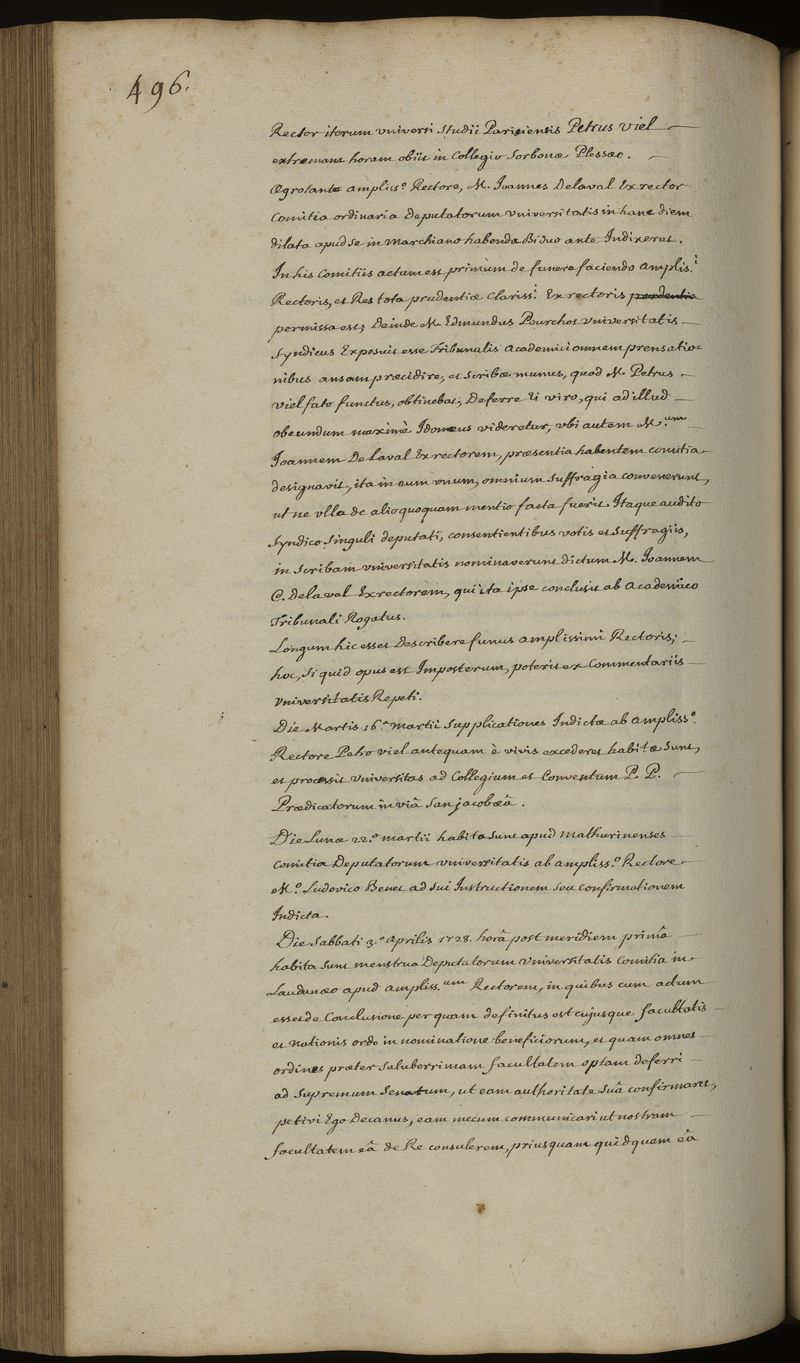 496.
Rector iterum vniversi Studii Parisiensis Petrus Viel
extremam horam obiit in Collegio Sorbonæ Plessæo.
Ægrotante ampliss.º Rectore, M. Joannes Delaval Exrector
Comitia ordinaria Deputatorum vniversitatis in hanc diem
dilata apud se in Marchiano habenda Biduo ante Indixerat.
In his Comitiis actum est primùm de funere faciendo ampliss.i
Rectoris, et Res tota prudentiæ Clariss.i Exrectoris prudentia
permissa est; Deinde M. Edmundus Pourchot vniversitatis
Syndicus Exposuit esse Tribunalis academici omnem prensatio=
nibus ansam præcidire, et scribæ munus, quod M. Petrus
Viel fato functus, obtinebat, Deferre Ei viro, qui ad illud
obeundum maximè Idoneus videretur, vbi autem M.um
Joannem Delaval Exrectorem, præsentia habentem comitia
designavit, ita in eum vnum, omnium suffragia convenerunt,
ut ne vlla de alio quoquam mentio facta fuerit. Itaque audito
Syndico singuli deputati, consentientibus votis et suffragiis,
in scribam vniversitatis nominaverunt dictum M. Joannem
C. Delaval Exrectorem, qui ita ipse conclusit ab academico
Tribunali Rogatus.
Longum hic esset Describere funus amplissimi Rectoris;
hoc, si quid opus est Imposterum, poterit ex Commentariis
vniversitatis Repeti.
Die Martis 16.ª Martii Supplicationes Indictæ ab ampliss.º
Rectore Petro viel antequam è vivis excederet habitæ sunt,
et processit vniversitas ad Collegium et Conventum P. P.
Prædicatorum in viâ Sanjacobæâ.
Die Lunæ 22.ª martii habita sunt apud Mathurinenses
Comitia Deputatorum vniversitatis ab ampliss.º Rectore
M.º Ludovico Benet ad sui Instructionem seu confirmationem
Indicta.
Die Sabbati 3.ª aprilis 1728. horâ post meridiem primâ
habita sunt menstrua Deputatorum vniversitatis Comitia in
Laudunæo apud ampliss.um Rectorem, in quibus cum actum
esset de Conclusione per quam definitus est cujusque facultatis
et nationis ordo in nominatione beneficiorum, et quam omnes
ordines præter saluberrimam facultatem optant deferri
ad Supremum Senatum, ut eam authoritate suâ confirmaret,
petivi Ego Decanus, eam mecum communicari ut nostram
facultatem eâ de Re consulerem, priusquam quidquam eâ